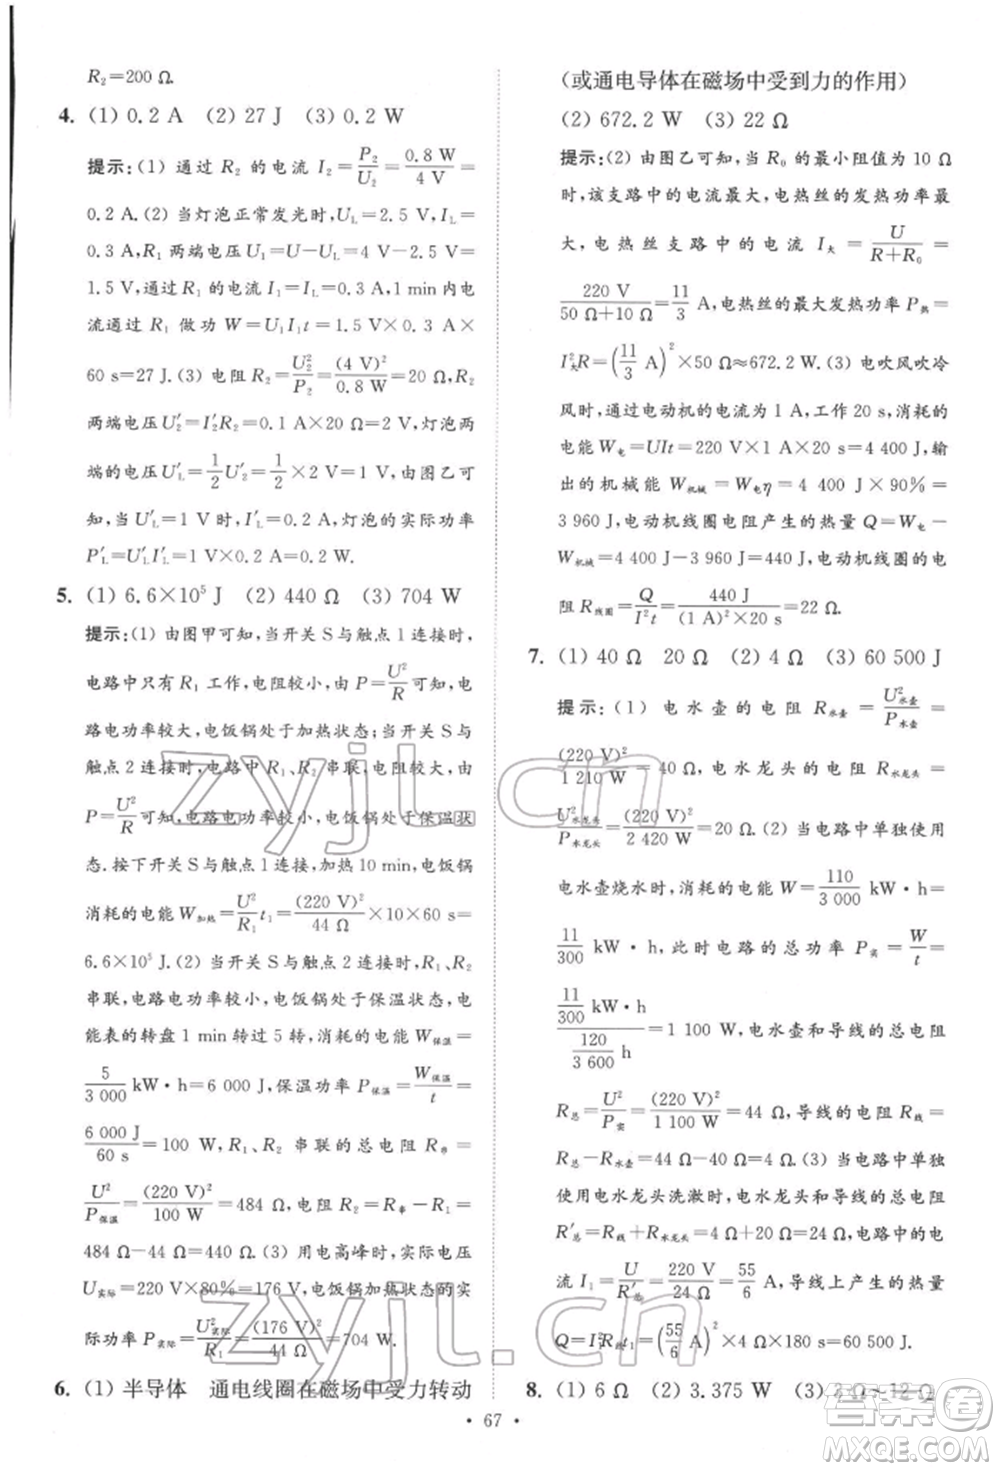 R₂=200 Ω.
4. (1) 0.2 A (2) 27 J (3) 0.2 W
提示:(1) 通过 R₂ 的电流 I₂=P₂/U₂=0.8 W/4 V=
0.2 A.(2) 当灯泡正常发光时,U_L=2.5 V,I_L=
0.3 A,R₁ 两端电压 U₁=U-U_L=4 V-2.5 V=
1.5 V,通过 R₁ 的电流 I₁=I_L=0.3 A,1 min内电
流通过 R₁ 做功 W=U₁I₁t=1.5 V×0.3 A×
60 s=27 J.(3) 电阻 R₂=U₂²/P₂=(4 V)²/0.8 W=20 Ω,R₂
两端电压 U₂′=I₂′R₂=0.1 A×20 Ω=2 V,灯泡两
端的电压 U_L′=1/2 U₂′=1/2×2 V=1 V,由图乙可
知,当 U_L′=1 V时,I_L′=0.2 A,灯泡的实际功率
P_L′=U_L′I_L′=1 V×0.2 A=0.2 W.
5. (1) 6.6×10⁵ J (2) 440 Ω (3) 704 W
提示:(1) 由图甲可知,当开关 S 与触点 1 连接时,
电路中只有 R₁ 工作,电阻较小,由 P=U²/R可知,电
路电功率较大,电饭锅处于加热状态;当开关 S 与
触点 2 连接时,电路中 R₁、R₂ 串联,电阻较大,由
P=U²/R可知,电路电功率较小,电饭锅处于保温状
态.按下开关 S 与触点 1 接触,加热 10 min,电饭锅
消耗的电能 W加热=U²/R₁ t₁=(220 V)²/44 Ω×10×60 s=
6.6×10⁵ J.(2) 当开关 S 与触点 2 连接时,R₁、R₂
串联,电路电功率较小,电饭锅处于保温状态,电
能表的转盘 1 min 转过 5 转,消耗的电能 W保温=
5/3 000 kW·h=6 000 J,保温功率 P保温=W保温/t=
6 000 J/60 s=100 W,R₁、R₂ 串联的总电阻 R串=
U²/P保温=(220 V)²/100 W=484 Ω,电阻 R₂=R串-R₁=
484 Ω-44 Ω=440 Ω.(3) 用电高峰时,实际电压
U实际=220 V×80%=176 V,电饭锅加热状态的实
际功率 P实际=U实际²/R₁=(176 V)²/44 Ω=704 W.
6. (1) 半导体 通电线圈在磁场中受力转动
(或通电导体在磁场中受到力的作用)
(2) 672.2 W (3) 22 Ω
提示:(2) 由图乙可知,当 R₀ 的最小阻值为 10 Ω
时,该支路中的电流最大,电热丝的发热功率最
大,电热丝支路中的电流 I大=U/(R+R₀)=
220 V/(50 Ω+10 Ω)=11/3 A,电热丝的最大发热功率 P热=
I大²R=(11/3 A)²×50 Ω≈672.2 W.(3) 电吹风吹冷
风时,通过电动机的电流为 1 A,工作 20 s,消耗的
电能 W电=UIt=220 V×1 A×20 s=4 400 J,输
出的机械能 W机械=W电η=4 400 J×90%=
3 960 J,电动机线圈电阻产生的热量 Q=W电-
W机械=4 400 J-3 960 J=440 J,电动机线圈的电
阻 R线圈=Q/I²t=440 J/((1 A)²×20 s)=22 Ω.
7. (1) 40 Ω 20 Ω (2) 4 Ω (3) 60 500 J
提示:(1) 电水壶的电阻 R水壶=U水壶²/P水壶=
(220 V)²/1 210 W=40 Ω,电水龙头的电阻 R水龙头=
U水龙头²/P水龙头=(220 V)²/2 420 W=20 Ω.(2) 当电路中单独使用
电水壶烧水时,消耗的电能 W=110/3 000 kW·h=
11/300 kW·h,此时电路的总功率 P实=W/t=
(11/300 kW·h)/(120/3 600 h)=1 100 W,电水壶和导线的总电阻
R总=U²/P实=(220 V)²/1 100 W=44 Ω,导线的电阻 R线=
R总-R水壶=44 Ω-40 Ω=4 Ω.(3) 当电路中单独
使用电水龙头洗漱时,电水龙头和导线的总电阻
R总′=R线+R水龙头=4 Ω+20 Ω=24 Ω,电路中的电
流 I₁=U/R总′=220 V/24 Ω=55/6 A,导线上产生的热量
Q=I₁²R线t₁=(55/6 A)²×4 Ω×180 s=60 500 J.
8. (1) 6 Ω (2) 3.375 W (3) 2 Ω~12 Ω
• 67 •
zyjl.cn
zyjl.cn
答案圈
MXQE.COM